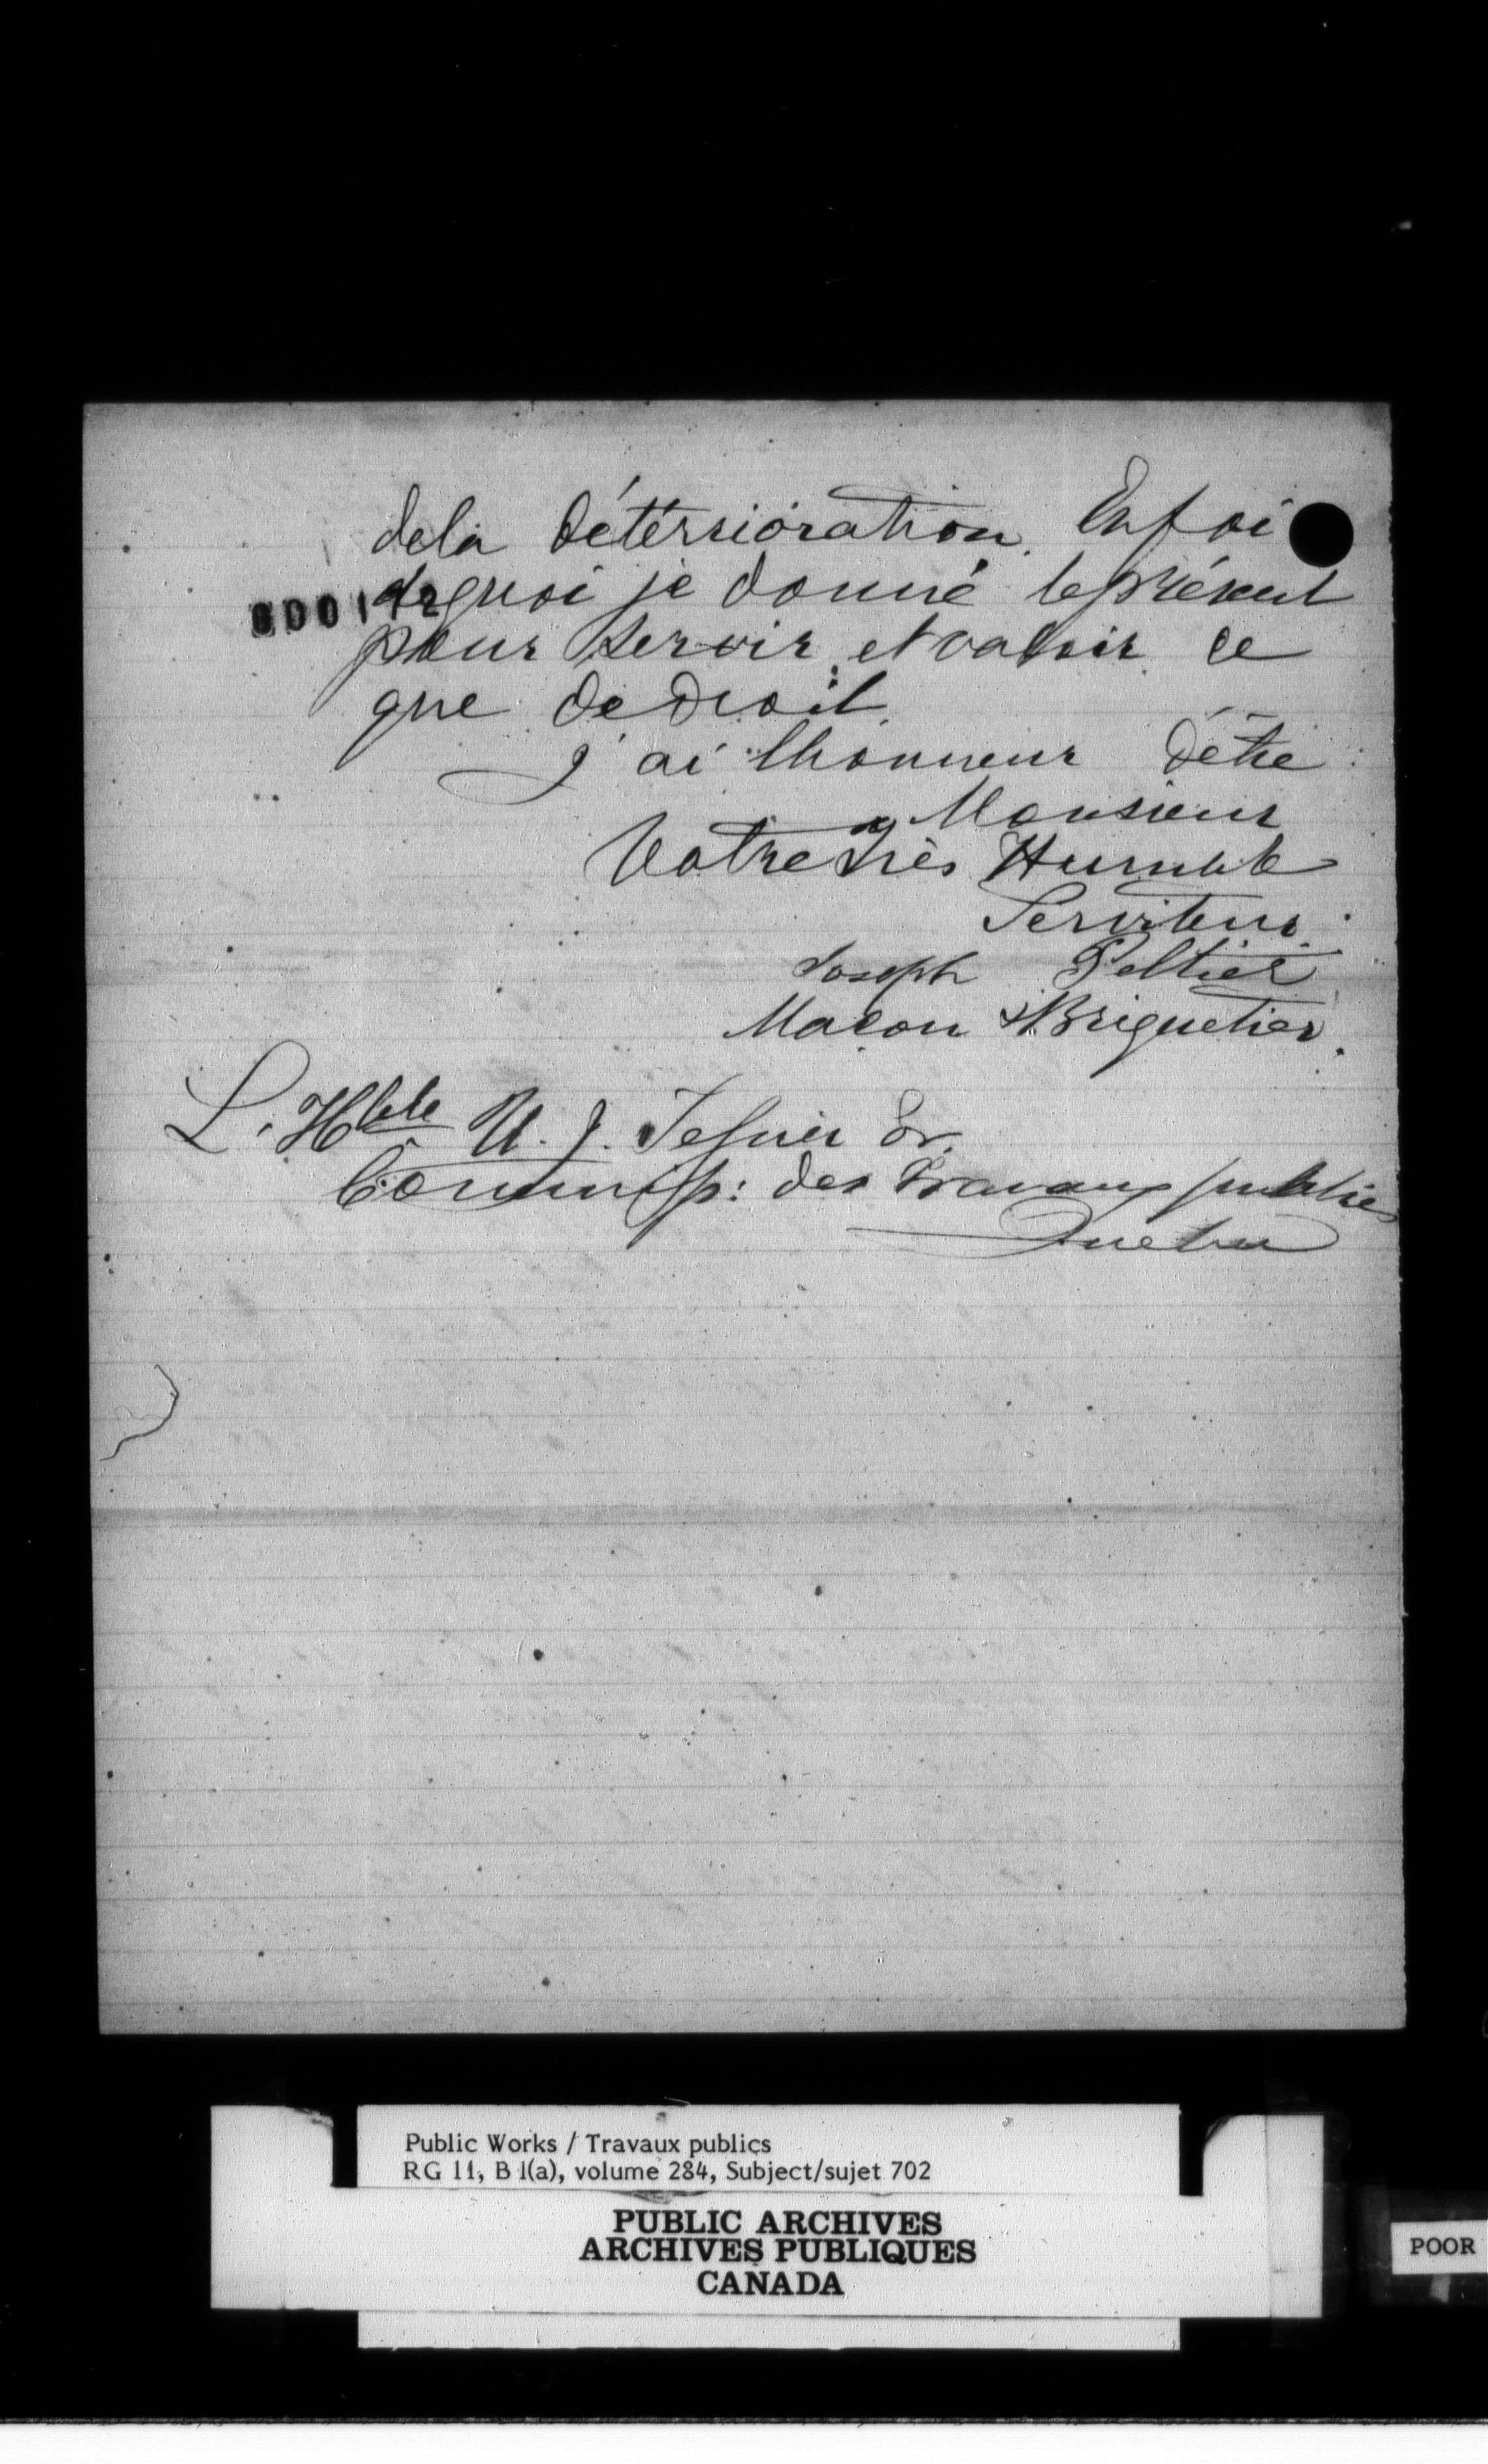 dela détérrioration. Enfoi
dequoi je donné leprésent
000142
pour servir et valoir ce
que de droit.
J'ai lhonneur d'être
Monsieur
Votre très Humble
Serviteur
Joseph Peltier
Macon & Briquetier.
L. Hble U. J. Tessier Er.
Commiss: des Travaux publics
Quebec
Public Works / Travaux publics
RG 11, B 1(a), volume 284, Subject/sujet 702
PUBLIC ARCHIVES
ARCHIVES PUBLIQUES
CANADA
POOR